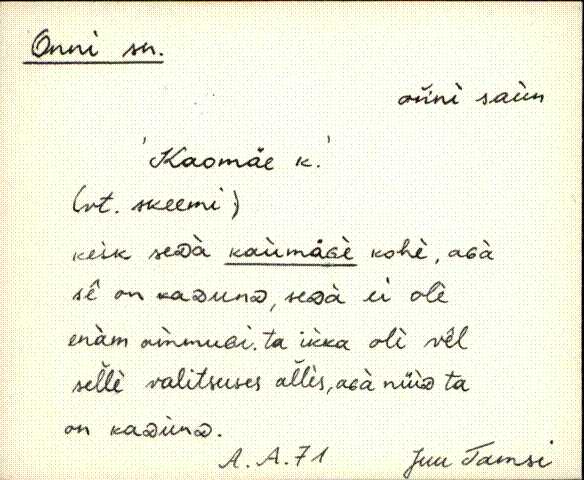 Onni sn.
oňnì saùn
'Kaomäe k.'
(vt. skeemi)
keìk seᴅà kaùmäɢè kohè, aɢà
sê on kaᴅunᴅ, seᴅà ei olè
enàm oìnmuɢi. ta ìkka olè vêl
sel̆lè valitsuses al̆lès, aɢà nüìᴅ ta
on kaᴅùnᴅ.
A. A. 71 Juu Tamsi